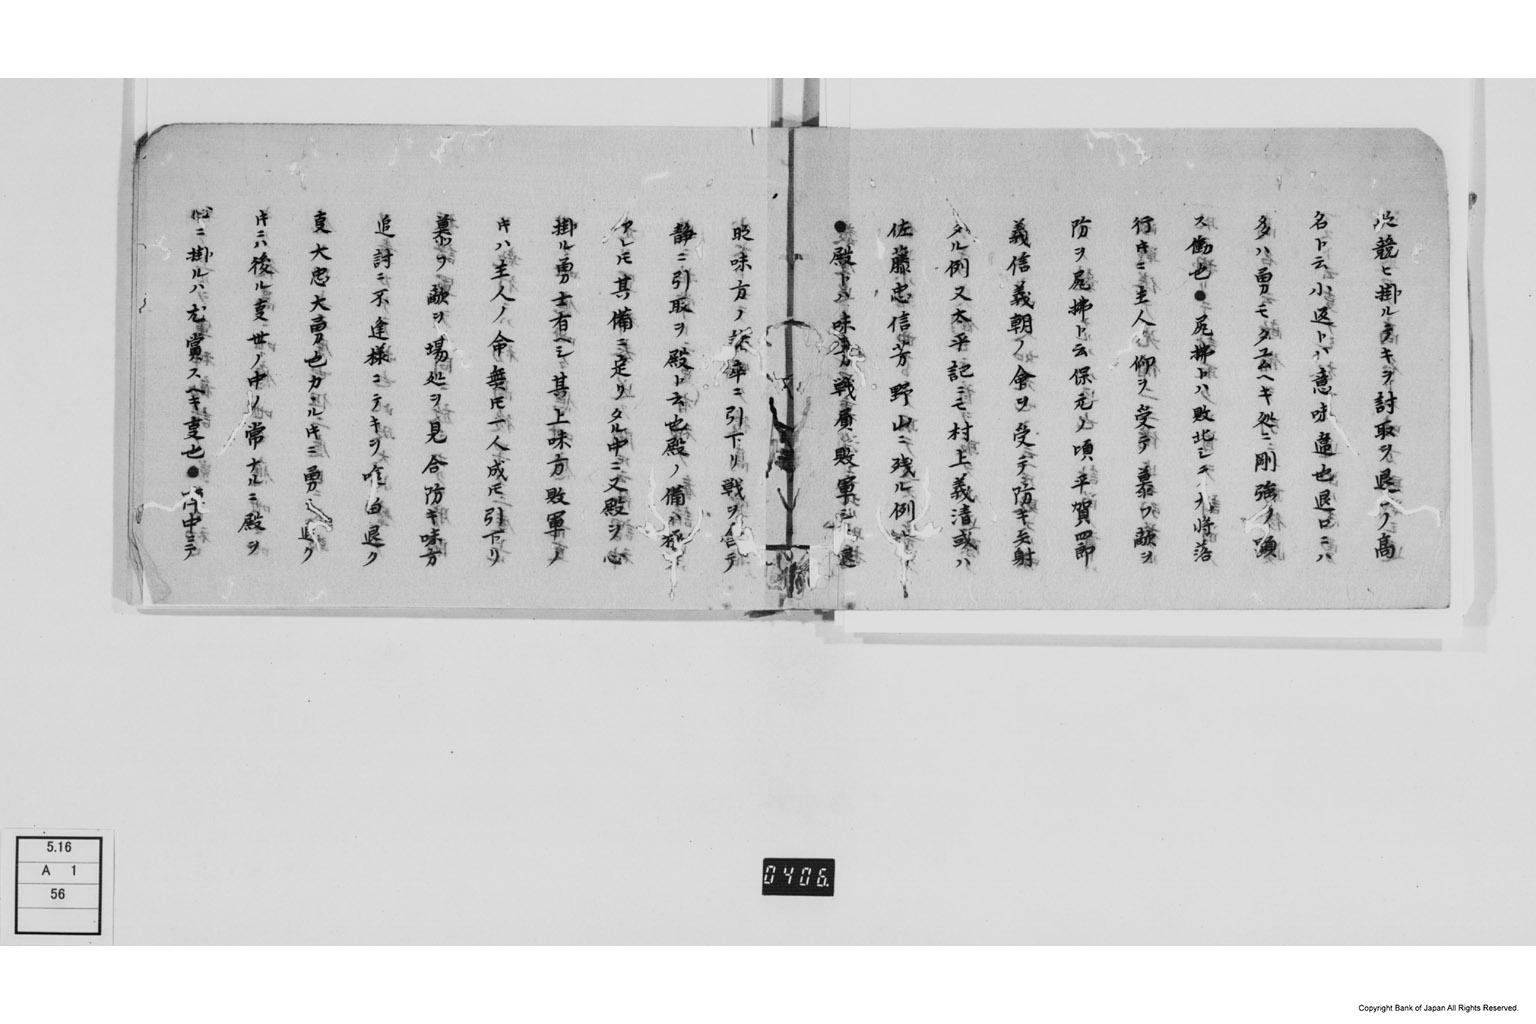 競ヒ掛ルテキヲ討取ヲ退ノ高
名ト云小返トハ意味違也退口ニハ
多ハ勇モタユムヘキ処ニ剛強ノ顕
ス働也●尻拂トハ敗北シテ大将落
行キニ主人ノ仰ヲ受テ慕フ敵ヲ
防ヲ尻拂ト云保元ノ頃平賀四郎
義信義朝ノ命ヲ受テ防キ矢射
タル例又太平記ニモ村上義清或ハ
佐藤忠信芳野山ニ残ル例
●殿トハ味方戦員敗軍シ
味方ノ諸卒ニ引下リ戦ヲ
静ニ引取ヲ殿ト云也殿ノ備ハ
アレモ其備ニ足リタル中ニ又殿ヲ心
掛ル勇士有ヘシ其上味方敗軍ノ
キハ主人ノ命無モ一人成モ引下リ
慕フ敵ヲ場処ヲ見合防キ味方
追討ニ不逢様ニテキヲ喰白退ク
支大忠大勇也カルキニ勇退ク
キニハ後ル支世ノ中ノ常ナルニ殿ヲ
心ニ掛ルハ尤賞スヘキ支也●中ニテ
5.16
A 1
56
0406.
Copyright Bank of Japan All Rights Reserved.